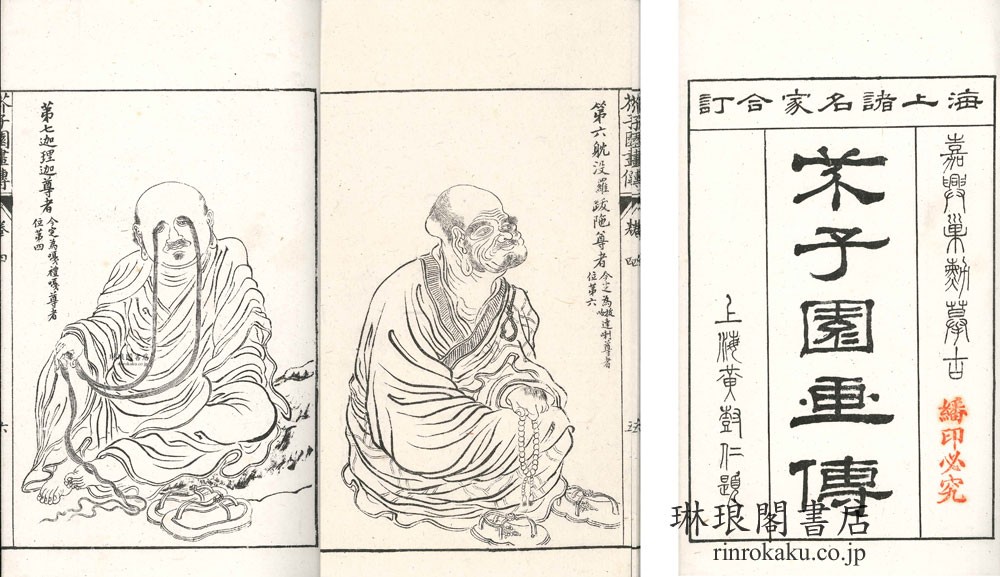 海上諸名家合訂
嘉興巢勳摹古
繙印必究
芥子園畫傳
上海黃鼓仁題
芥子園畫傳
四
第六躭没羅跋陁尊者
今定為拔哈達喇尊者
位第六
第七迦理迦尊者
今定為嘎禮嘎尊者
位第四
芥子園畫傳
卷四
六
琳琅閣書店
rinrokaku.co.jp